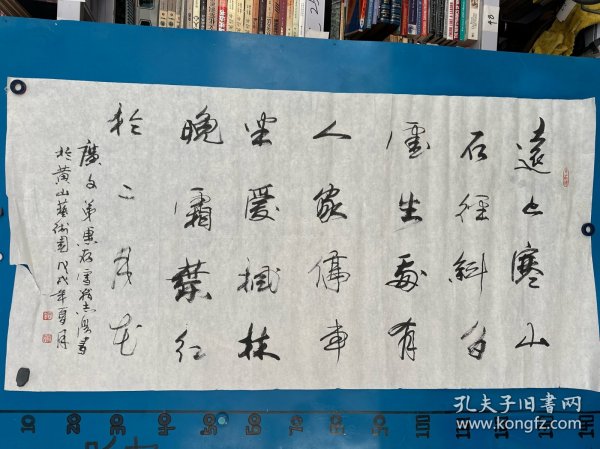 遠上寒山
石徑斜白
雲生處有
人家停車
坐愛楓林
晚霜葉紅
於二月花
廣文弟惠存書
於黃山藝術園戊戌年夏月
孔夫子旧书网